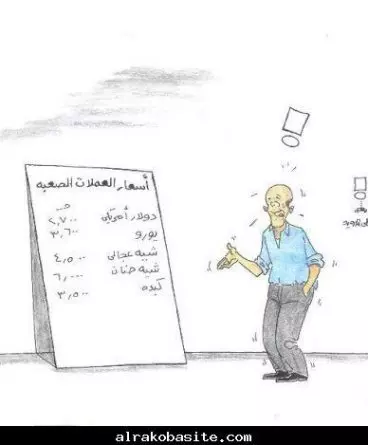 أسعار العملات الصعبه
ص
دولار أمريكي ٢,٧٠٠
يورو ٣,٦٠٠
شيه عجالي ٤,٥٠٠
شيه ضان ٦,٠٠٠
كبده ٣,٥٠٠
alrakobasite.com